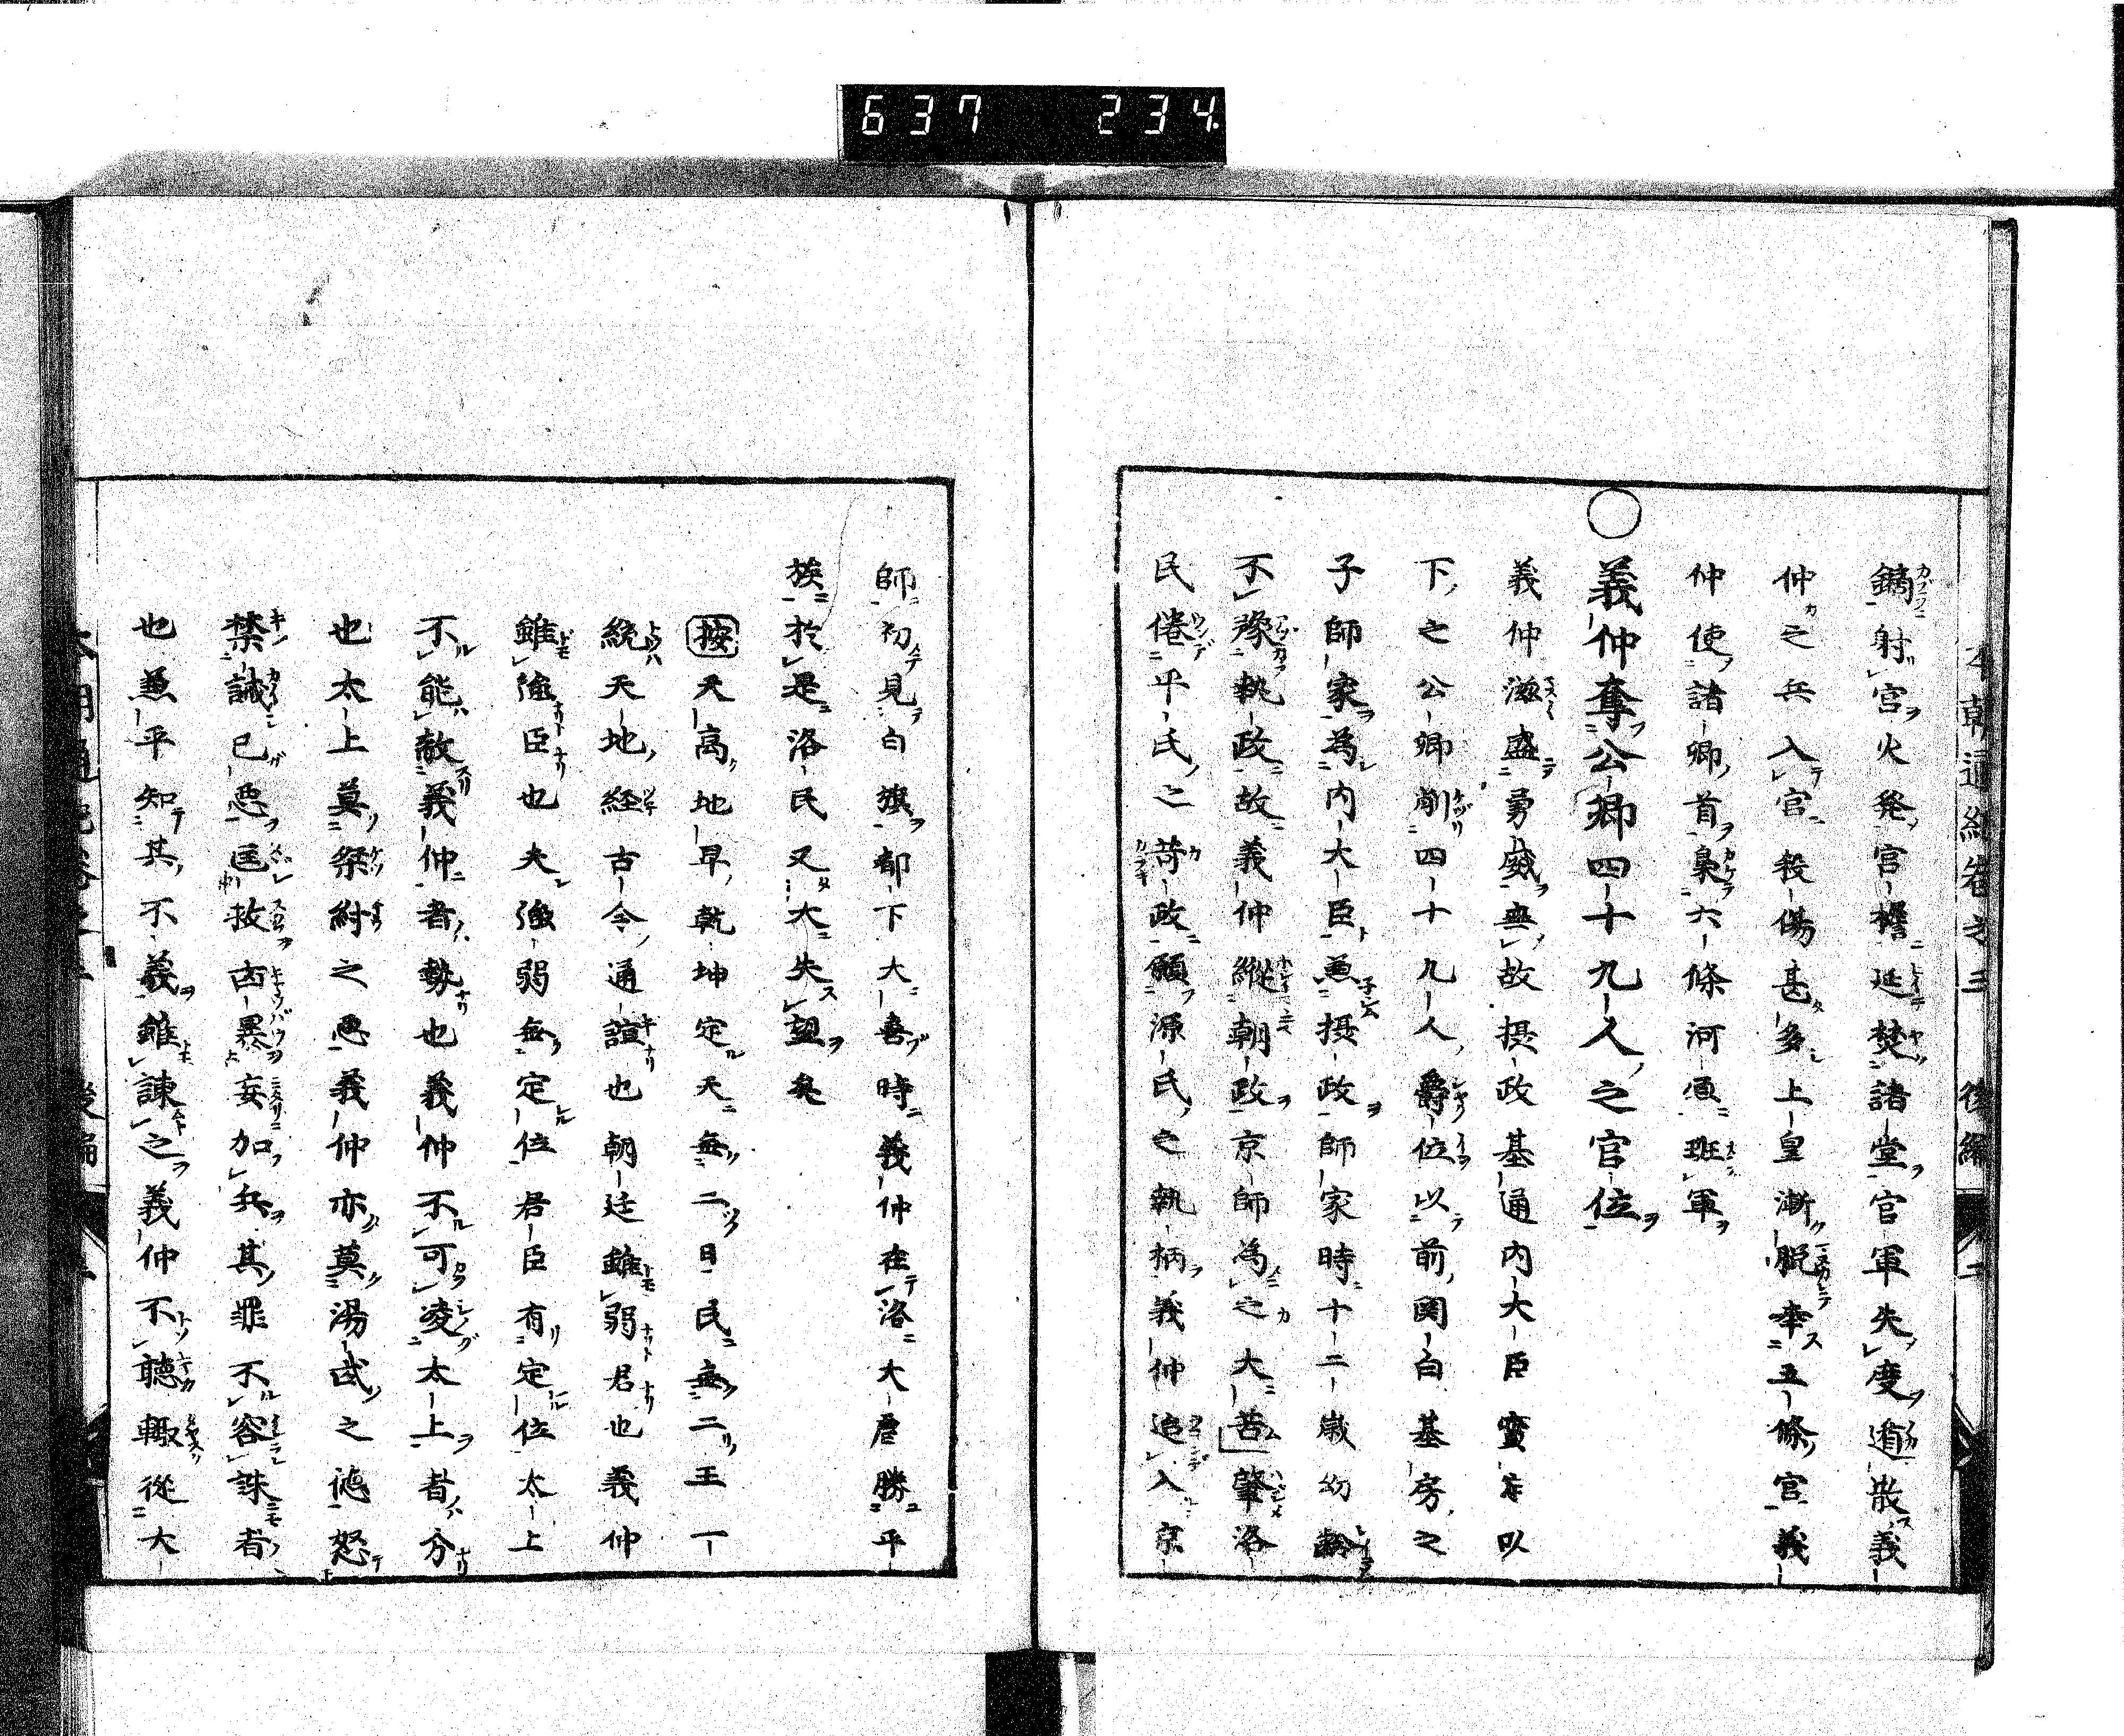 637 234
本朝通紀卷之三 後編 二
鏑射宮火発宮檐延焚諸堂官軍失度遁散義
仲之兵入宮殺傷甚多上皇漸脱幸五條宮義
仲使諸卿首梟六條河原班軍
○義仲奪公卿四十九人之官位
義仲滋盛勇威無故摂政基通内大臣實定以
下之公卿削四十九人爵位以前関白基房之
子師家為内大臣兼摂政師家時十二歳幼齢
不豫執政故義仲縱朝政京師為之大苦肇洛
民倦平氏之苛政願源氏之執柄義仲追入京
師初見白旗都下大喜時義仲在洛大屠勝平
族於是洛民又大失望矣
按天高地早乾坤定天無二日民無二王一
統天地経古今通誼也朝廷雖弱君也義仲
雖強臣也夫強弱無定位君臣有定位太上
不能敵義仲者勢也義仲不可凌太上者分
也太上莫桀紂之悪義仲亦莫湯武之徳怒
禁誡已悪匡救凶暴妄加兵其罪不容誅者
也兼平知其不義雖諌之義仲不聴輙從大